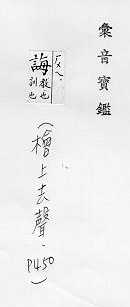 彙音寶鑑
ㄏㄨㄟˋ
誨 教也 訓也
(檜上去聲.P450)